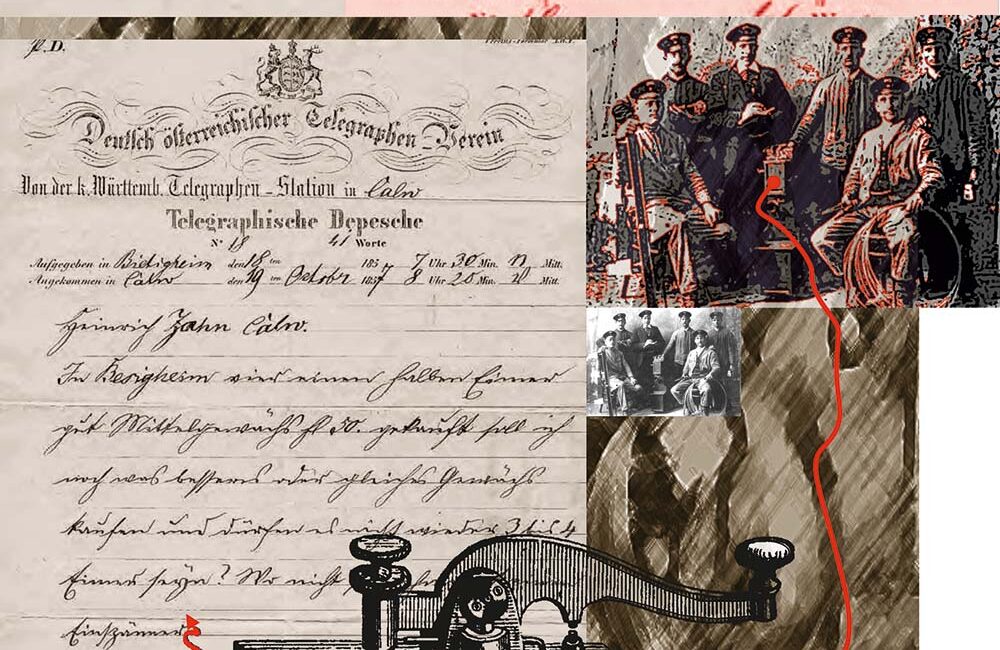 P. D.
Deutsch österreichischer Telegraphen-Verein
Von der k. Württemb. Telegraphen-Station in Calw
Telegraphische Depesche
No 18 41 Worte
Aufgegeben in Bietigheim den 18 ten 185 7 Uhr 30 Min. N Mitt.
Angekommen in Calw den 19 ten October 1857 8 Uhr 20 Min. Mitt.
Heinrich Zahn Calw.
In Besigheim vier einen halben Eimer
gut Mittelgewächs fl 50. gekauft soll ich
noch was besseres oder gleiches Gewächs
kaufen und dürfen es nicht wieder 3 bis 4
Eimer seyn? Wo nicht
Einspänner